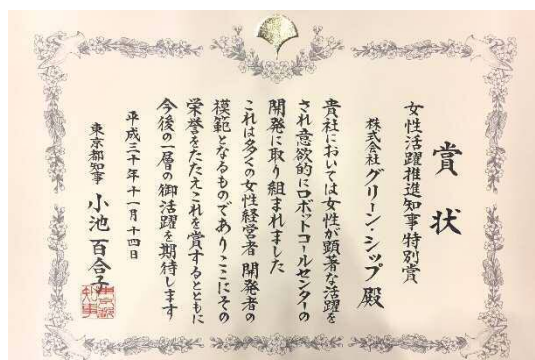 賞状
女性活躍推進知事特別賞
株式会社グリーン・シップ殿
貴社においては女性が顕著な活躍を
され意欲的にロボットコールセンターの
開発に取り組まれました
これは多くの女性経営者 開発者の
模範となるものでありここにその
栄誉をたたえこれを賞するとともに
今後の一層の御活躍を期待します
平成三十年十一月十四日
東京都知事 小池百合子
東京都
知事